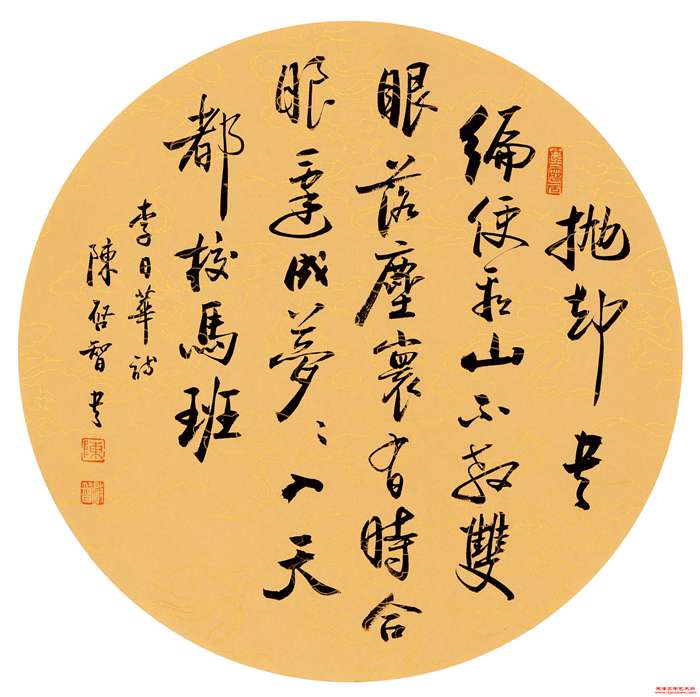 抛却書
編便看山不教雙
眼落塵寰有時合
眼還成夢〻入天
都校馬班
李日華詩
陳啓智書
陳